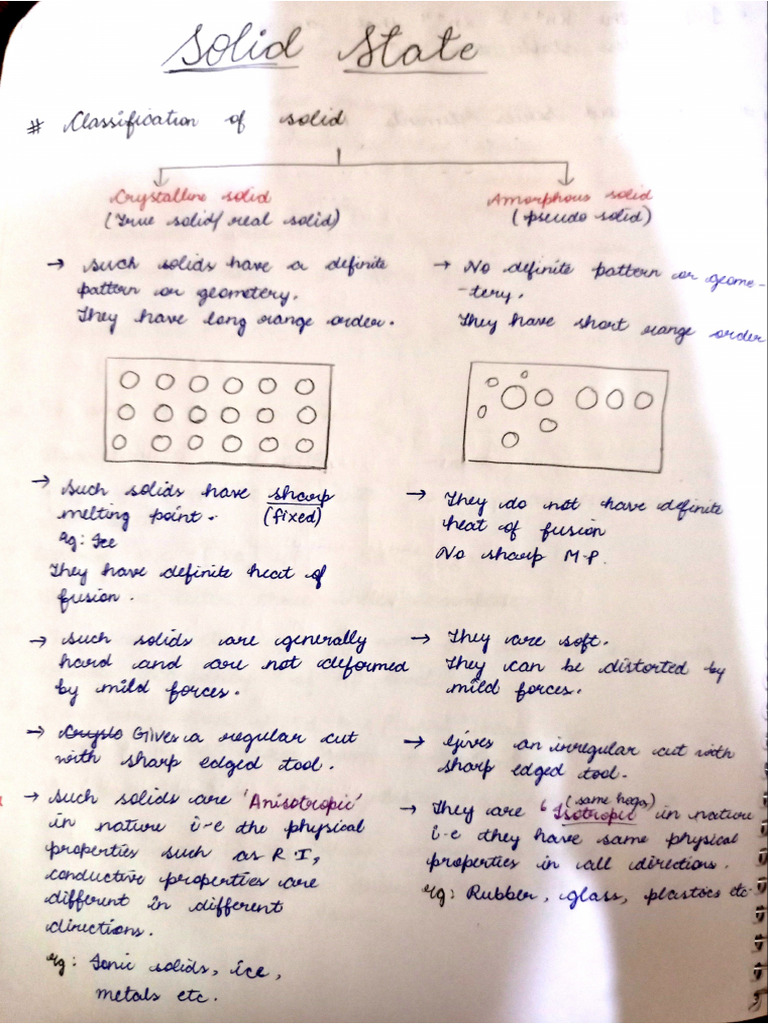 Solid State
# Classification of solid
Crystalline solid
(True solid/real solid)
→ Such solids have a definite
pattern or geometery.
They have long range order.
→ Such solids have sharp
melting point. (fixed)
eg: Ice
They have definite heat of
fusion.
→ Such solids are generally
hard and are not deformed
by mild forces.
→ Crysta Gives a regular cut
with sharp edged tool.
→ Such solids are 'Anisotropic'
in nature i-e the physical
properties such as R.I,
conductive properties are
different in different
directions.
eg: Ionic solids, ice,
metals etc.
Amorphous solid
(pseudo solid)
→ No definite pattern or geome-
-tery.
They have short range order
→ They do not have definite
heat of fusion
No sharp M.P.
→ They are soft.
They can be distorted by
mild forces.
→ Gives an irregular cut with
sharp edged tool.
(same hoga)
→ They are 'Isotropic' in nature
i-e they have same physical
properties in all directions.
eg: Rubber, glass, plastics etc